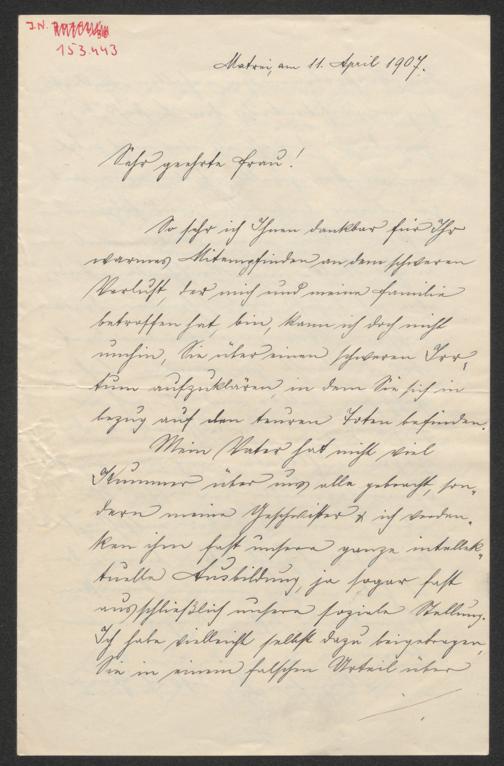 J. N.
153.443
Matrei, am 11. April 1907.
Sehr geehrte Frau!
So sehr ich Ihnen dankbar für Ihr
warmes Mitempfinden an dem schweren
Verlust, der mich und meine Familie
betroffen hat, bin, kann ich doch nicht
umhin, Sie über einen schweren Irr-
tum aufzuklären, in dem Sie sich in
bezug auf den teuren Toten befinden.
Mein Vater hat nicht viel
Kummer über uns alle gebracht, son-
dern meine Geschwister & ich verdan-
ken ihm fast unsere ganze intellek-
tuelle Ausbildung, ja sogar fast
ausschließlich unsere soziale Stellung.
Ich habe vielleicht selbst dazu beigetragen,
Sie in einem falschen Urteil über